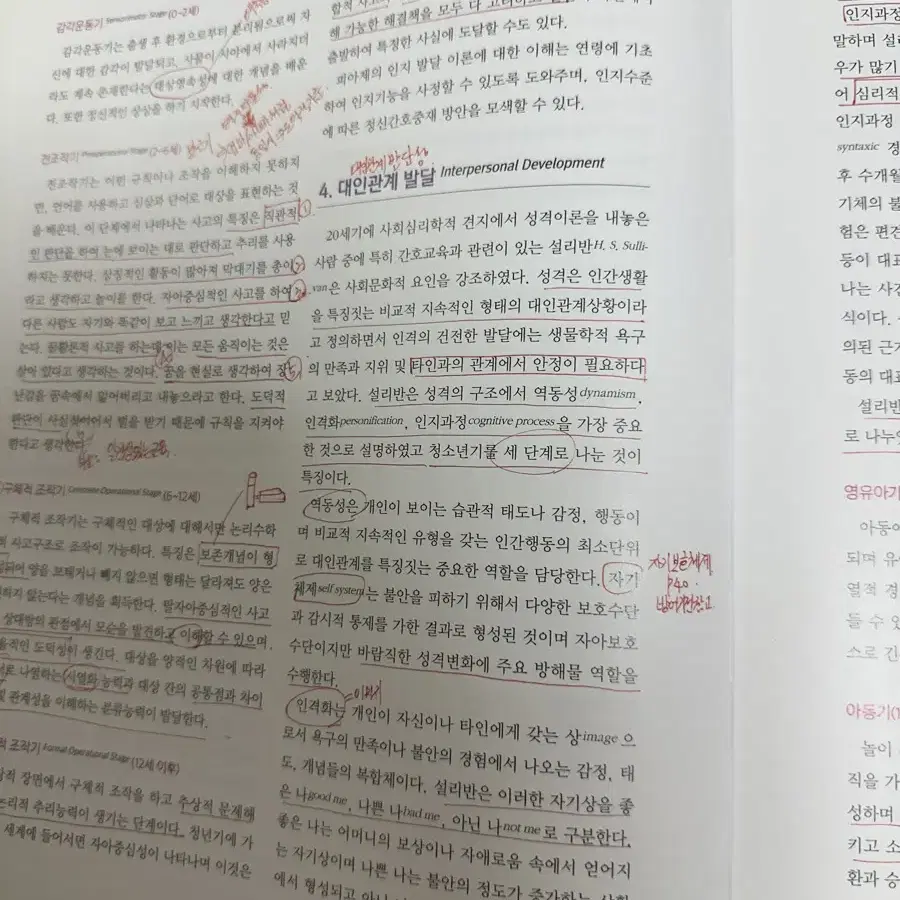 감각운동기 Sensorimotor Stage (0~2세)
감각운동기는 출생 후 환경으로부터 분리됨으로써 자
신에 대한 감각이 발달되고, 사물이 시야에서 사라지더
라도 계속 존재한다는 대상영속성에 대한 개념을 배운
다. 또한 정신적인 상상을 하기 시작한다.
전조작기 Preoperational Stage (2~6세)
전조작기는 어떤 규칙이나 조작을 이해하지 못하지
만, 언어를 사용하고 심상과 단어로 대상을 표현하는 것
을 배운다. 이 단계에서 나타나는 사고의 특징은 직관적
인 판단을 하여 눈에 보이는 대로 판단하고 추리를 사용
하지는 못한다. 상징적인 활동이 많아져 막대기를 총이
라고 생각하고 놀이를 한다. 자아중심적인 사고를 하여
다른 사람도 자기와 똑같이 보고 느끼고 생각한다고 믿
는다. 물활론적 사고를 하는데 이는 모든 움직이는 것은
살아 있다고 생각하는 것이다. 꿈을 현실로 생각하여 장
난감을 꿈속에서 잃어버리고 내놓으라고 한다. 도덕적
판단이 사실적이어서 벌을 받기 때문에 규칙을 지켜야
한다고 생각한다.
구체적 조작기 Concrete Operational Stage (6~12세)
구체적 조작기는 구체적인 대상에 대해서만 논리수학
사고구조로 조작이 가능하다. 특징은 보존개념이 형
되어 양을 보태거나 빼지 않으면 형태는 달라져도 양은
하지 않는다는 개념을 획득한다. 탈자아중심적인 사고
상대방의 관점에서 모순을 발견하고 이해할 수 있으며,
율적인 도덕성이 생긴다. 대상을 양적인 차원에 따라
로 나열하는 서열화 능력과 대상 간의 공통점과 차이
및 관계성을 이해하는 분류능력이 발달한다.
적 조작기 Formal Operational Stage (12세 이후)
상적 장면에서 구체적 조작을 하고 추상적 문제해
논리적 추리능력이 생기는 단계이다. 청년기에 가
세계에 들어서면 자아중심성이 나타나며 이것은
해 가능한 해결책을 모두 다 고려하고
출발하여 특정한 사실에 도달할 수도 있다.
피아제의 인지 발달 이론에 대한 이해는 연령에 기초
하여 인지기능을 사정할 수 있도록 도와주며, 인지수준
에 따른 정신간호중재 방안을 모색할 수 있다.
4. 대인관계 발달 Interpersonal Development
20세기에 사회심리학적 견지에서 성격이론을 내놓은
사람 중에 특히 간호교육과 관련이 있는 설리반H. S. Sulli-
van은 사회문화적 요인을 강조하였다. 성격은 인간생활
을 특징짓는 비교적 지속적인 형태의 대인관계상황이라
고 정의하면서 인격의 건전한 발달에는 생물학적 욕구
의 만족과 지위 및 타인과의 관계에서 안정이 필요하다
고 보았다. 설리반은 성격의 구조에서 역동성dynamism,
인격화personification, 인지과정cognitive process을 가장 중요
한 것으로 설명하였고 청소년기를 세 단계로 나눈 것이
특징이다.
역동성은 개인이 보이는 습관적 태도나 감정, 행동이
며 비교적 지속적인 유형을 갖는 인간행동의 최소단위
로 대인관계를 특징짓는 중요한 역할을 담당한다. 자기
체제self system는 불안을 피하기 위해서 다양한 보호수단
과 감시적 통제를 가한 결과로 형성된 것이며 자아보호
수단이지만 바람직한 성격변화에 주요 방해물 역할을
수행한다.
인격화는 개인이 자신이나 타인에게 갖는 상image으
로서 욕구의 만족이나 불안의 경험에서 나오는 감정, 태
도, 개념들의 복합체이다. 설리반은 이러한 자기상을 좋
은 나good me, 나쁜 나bad me, 아닌 나not me로 구분한다.
좋은 나는 어머니의 보상이나 자애로움 속에서 얻어지
는 자기상이며 나쁜 나는 불안의 정도가 증가하는 상황
에서 형성되고
인지과정
말하며 설리
우가 많기
어 심리적
인지과정
syntaxic 경
후 수개월
기체의 불
험은 편견
등이 대표
나는 사건
식이다.
의된 근거
동의 대표
설리반
로 나누었
영유아기
아동이
되며 유
열적 경
들 수 있
스로 긴
아동기(1
놀이
직을 가
성하며
키고 소
환과 승